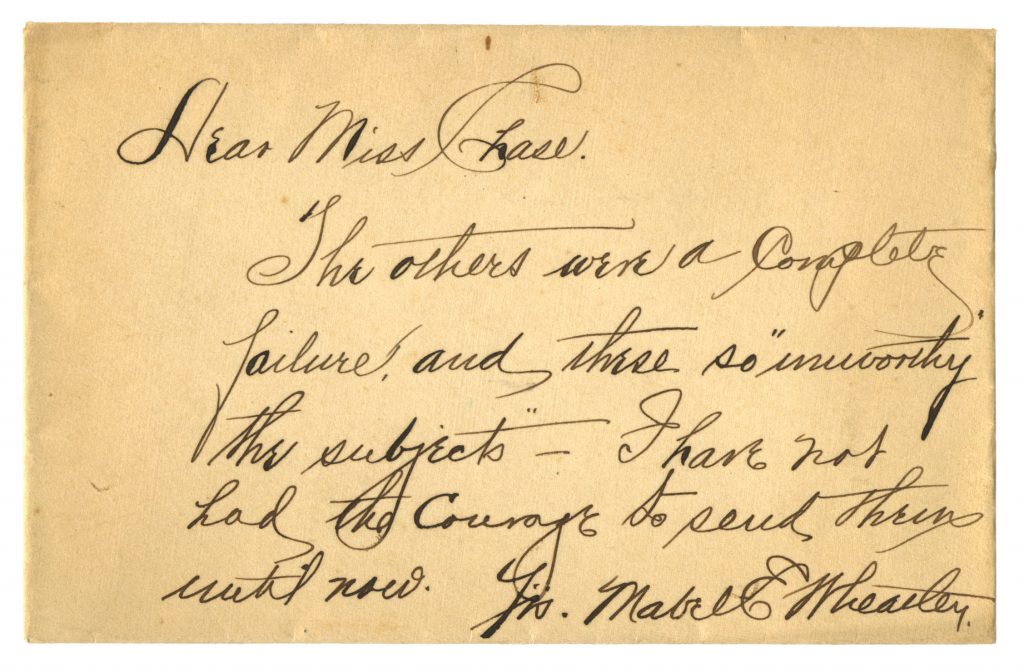 Dear Miss Chase.
The others were a Complete
failure, and these so "unworthy"
the subjects" — I have not
had the Courage to send them
until now. Mabel E Wheatley.